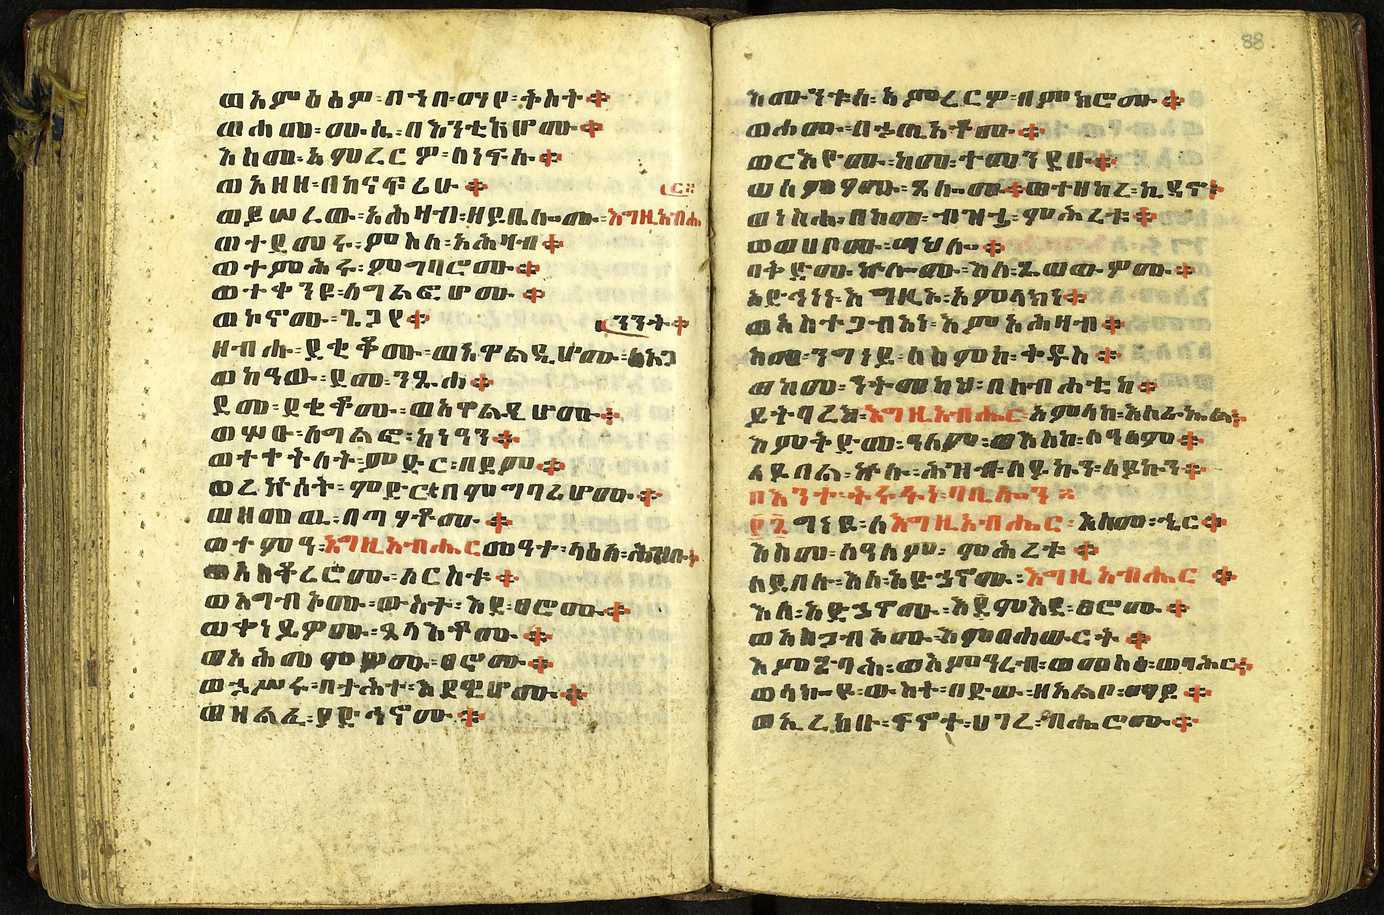 ወአምዕፅዎ፡በኀበ፡ማየ፡ቅስት።
ወሐመ፡ሙሴ፡በእንቲአሆሙ።
እስመ፡አምረርዎ፡ለነፍሱ።
ወአዘዘ፡በከናፍሪሁ።
ር፡
ወይሠረው፡አሕዛብ፡ዘይቤሎሙ፡እግዚአብሔ
ወተደመሩ፡ምስለ፡አሕዛብ።
ወተምሕሩ፡ምግባሮሙ።
ወተቀንዩ፡ለግልፎሆሙ።
ወኮኖሙ፡ጌጋየ።
ንንት።
ዘብሑ፡ደቂቆሙ፡ወአዋልዲሆሙ፡ለአጋ
ወከዓው፡ደመ፡ንጹሐ።
ደመ፡ደቂቆሙ፡ወአዋልዲሆሙ።
ወሦዑ፡ለግልፎ፡ከነዓን።
ወተቀትለት፡ምድር፡በደም።
ወረኵሰት፡ምድር፡በምግባሪሆሙ።
ወዘመዉ፡በጣዖቶሙ።
ወተምዓ፡እግዚአብሔር፡መዓተ፡ላዕለ፡ሕዝቡ።
ወአስቆረሮሙ፡ለርስቱ።
ወአግብኦሙ፡ውስተ፡እደ፡ፀሮሙ።
ወቀነይዎሙ፡ጸላእቶሙ።
ወአሕመምዎሙ፡ፀሮሙ።
ወኃሥሩ፡በታሕተ፡እደዊሆሙ።
ወዘልፈ፡ያድኅኖሙ።
88
እሙንቱሰ፡አምረርዎ፡በምክሮሙ።
ወሐሙ፡በኃጢአቶሙ።
ወርእዮሙ፡ከመ፡ተመንደቡ።
ወሰምዖሙ፡ጸሎቶሙ።ወተዘከረ፡ኪዳኖ።
ወነስሐ፡በከመ፡ብዝኃ፡ምሕረቱ።
ወወሀቦሙ፡ሣህሎ።
በቅድመ፡ኵሎሙ፡እለ፡ጼወውዎሙ።
አድኅነነ፡እግዚኦ፡አምላክነ።
ወአስተጋብአነ፡እምአሕዛብ።
ከመ፡ንግነይ፡ለስምከ፡ቅዱስ።
ወከመ፡ንትመካህ፡በስብሐቲከ።
ይትባረክ፡እግዚአብሔር፡አምላከ፡እስራኤል።
እምቅድመ፡ዓለም፡ወእስከ፡ለዓለም።
ለይበል፡ኵሉ፡ሕዝብ፡ለይኩን፡ለይኩን።
በእንተ፡ትሩፋነ፡ባቢሎን።
፻፮ግነዩ፡ለእግዚአብሔር፡እስመ፡ኄር።
እስመ፡ለዓለም፡ምሕረቱ።
ለይበሉ፡እለ፡አድኃኖሙ፡እግዚአብሔር።
እለ፡አድኃኖሙ፡እደምእደ፡ፀሮሙ።
ወአስተጋብኦሙ፡እምበሐውርት።
እምጽባሕ፡ወእምዓረብ፡ወመስዕ፡ወባሕር።
ወሳኰዩ፡ውስተ፡በድው፡ዘአልቦ፡ማይ።
ወኢረከቡ፡ፍኖተ፡ሀገረ፡ብሔሮሙ።